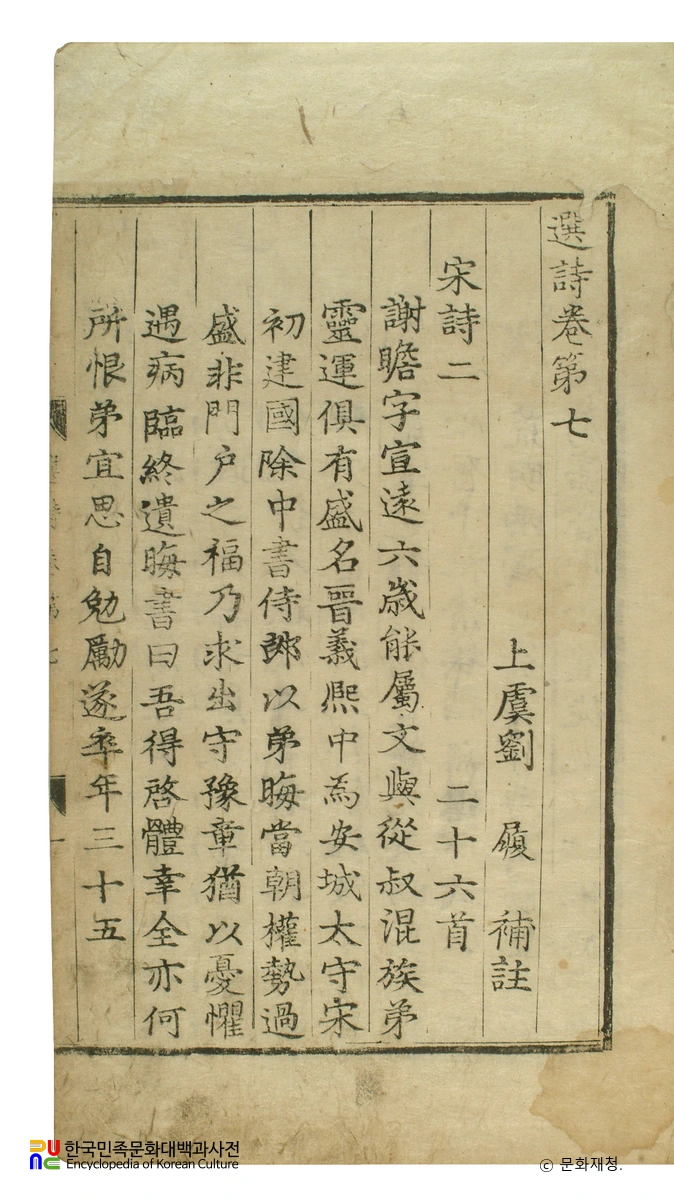 選詩卷第七
上虞劉 履 補註
宋詩二 二十六首
謝瞻字宣遠六歳能屬文與從叔混族弟
靈運俱有盛名晉義熙中為安城太守宋
初建國除中書侍郎以弟晦當朝權勢過
盛非門户之福乃求出守豫章猶以憂懼
遇病臨終遺晦書曰吾得啓體幸全亦何
所恨弟宜思自勉勵遂卒年三十五
한국민족문화대백과사전
Encyclopedia of Korean Culture
© 문화재청.